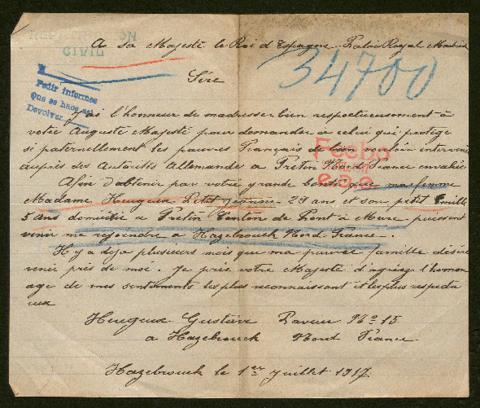 REPATRIACION
CIVIL
A sa Majesté le Roi d'Espagne Palais Royal Madrid
34700
Sire
Pedir informes
Que se hace
Devolver
J'ai l'honneur de m'adresser bien respectueusement à
votre Auguste Majesté pour demander à celui qui protége
si paternellement les pauvres Français de bien vouloir intervenir
auprès des Autorités Allemande à Fretin Nord France envahie
Fecho
Afin d'obtenir par votre grande bonté que ma femme
Madame Heugeux Petit 29 ans et son petit Emille
5 ans domicilié à Fretin de Pont à Marcq puissent
venir me rejoindre à Hazebrouck Nord France.
Il y a déja plusieurs mois que ma pauvre famille désire
venir près de moi. Je prie votre Majesté d'agréer l'homm
age de mes sentiments les plus reconnaissant et les plus respectu
eux
Heugeux Gustave Paveur No 15
à Hazebrouck Nord France
Hazebrouck le 1er Juillet 1917